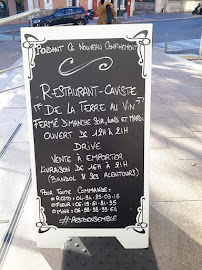 Pendant Ce Nouveau Confinement
Restaurant-Caviste
"De La Terre au Vin"
Fermé Dimanche Soir, Lundi et Mardi
Ouvert de 12H à 21H
Drive
Vente à emporter
Livraison de 16H à 21H
(Bandol & ses alentours)
Pour Toute Commande: